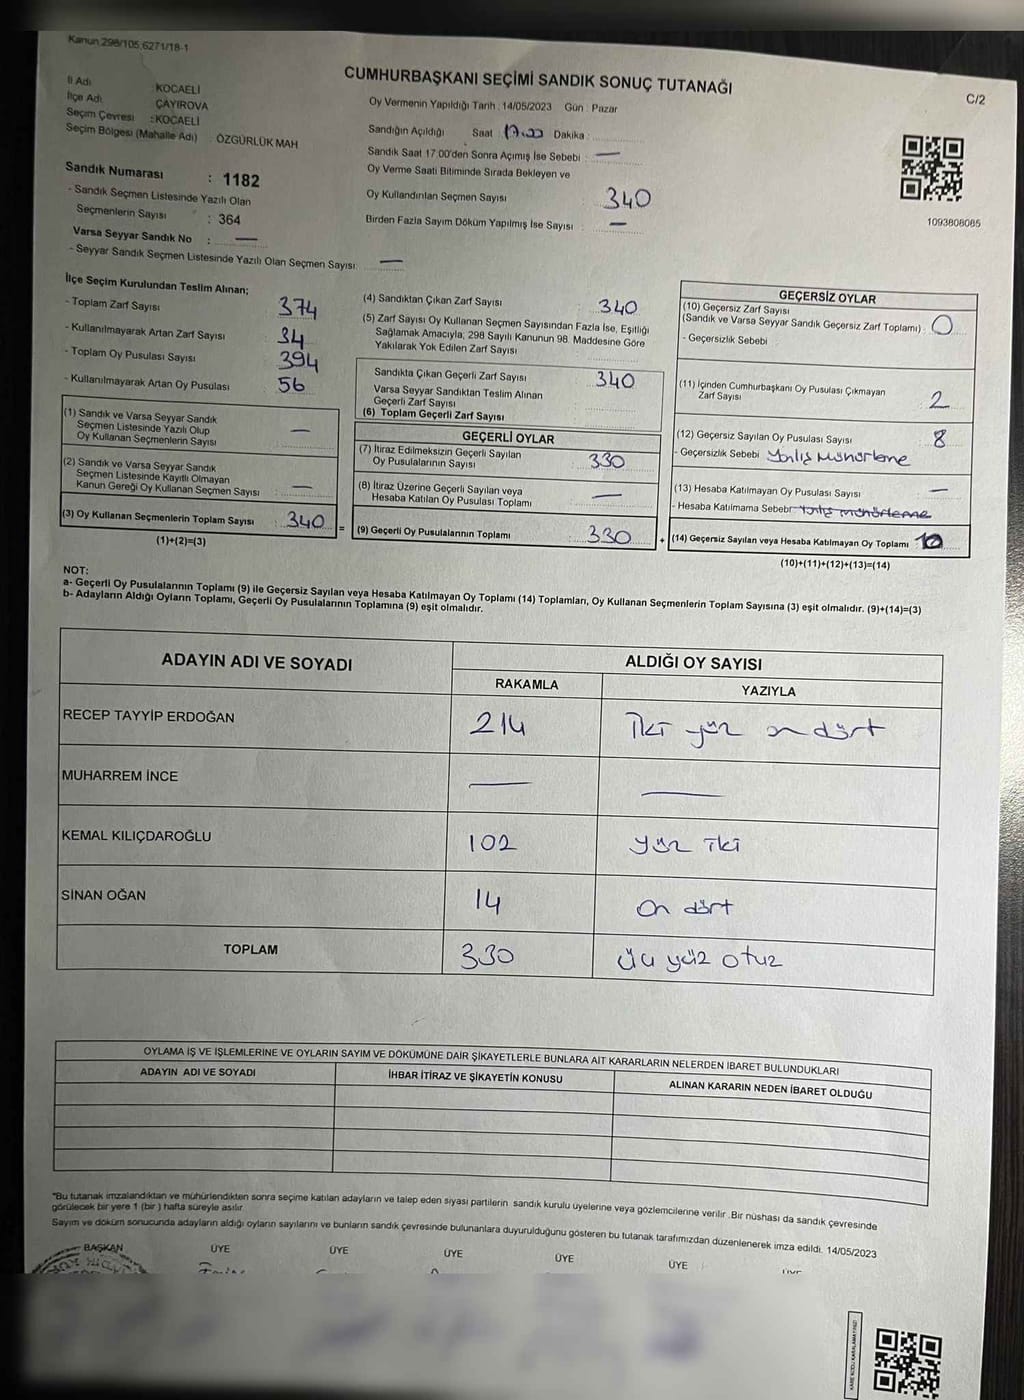 Kanun 298/105;6271/18-1
CUMHURBAŞKANI SEÇİMİ SANDIK SONUÇ TUTANAĞI
C/2
İl Adı : KOCAELİ
İlçe Adı : ÇAYIROVA
Seçim Çevresi : KOCAELİ
Seçim Bölgesi (Mahalle Adı) : ÖZGÜRLÜK MAH
Sandık Numarası : 1182
- Sandık Seçmen Listesinde Yazılı Olan
Seçmenlerin Sayısı : 364
Varsa Seyyar Sandık No : —
- Seyyar Sandık Seçmen Listesinde Yazılı Olan Seçmen Sayısı: —
Oy Vermenin Yapıldığı Tarih : 14/05/2023 Gün : Pazar
Sandığın Açıldığı Saat : 17.00 Dakika :
Sandık Saat 17:00'den Sonra Açımış İse Sebebi : —
Oy Verme Saati Bitiminde Sırada Bekleyen ve
Oy Kullandırılan Seçmen Sayısı 340
Birden Fazla Sayım Döküm Yapılmış İse Sayısı : —
1093808085
İlçe Seçim Kurulundan Teslim Alınan;
- Toplam Zarf Sayısı : 374
- Kullanılmayarak Artan Zarf Sayısı : 34
- Toplam Oy Pusulası Sayısı : 394
- Kullanılmayarak Artan Oy Pusulası : 56
(1) Sandık ve Varsa Seyyar Sandık
Seçmen Listesinde Yazılı Olup
Oy Kullanan Seçmenlerin Sayısı : —
(2) Sandık ve Varsa Seyyar Sandık
Seçmen Listesinde Kayıtlı Olmayan
Kanun Gereği Oy Kullanan Seçmen Sayısı : —
(3) Oy Kullanan Seçmenlerin Toplam Sayısı : 340 =
(1)+(2)=(3)
(4) Sandıktan Çıkan Zarf Sayısı : 340
(5) Zarf Sayısı Oy Kullanan Seçmen Sayısından Fazla İse, Eşitliği
Sağlamak Amacıyla, 298 Sayılı Kanunun 98. Maddesine Göre
Yakılarak Yok Edilen Zarf Sayısı
Sandıkta Çıkan Geçerli Zarf Sayısı : 340
Varsa Seyyar Sandıktan Teslim Alınan
Geçerli Zarf Sayısı
(6) Toplam Geçerli Zarf Sayısı
GEÇERLİ OYLAR
(7) İtiraz Edilmeksizin Geçerli Sayılan
Oy Pusulalarının Sayısı : 330
(8) İtiraz Üzerine Geçerli Sayılan veya
Hesaba Katılan Oy Pusulası Toplamı : —
(9) Geçerli Oy Pusulalarının Toplamı : 330 +
GEÇERSİZ OYLAR
(10) Geçersiz Zarf Sayısı
(Sandık ve Varsa Seyyar Sandık Geçersiz Zarf Toplamı) : 0
- Geçersizlik Sebebi
(11) İçinden Cumhurbaşkanı Oy Pusulası Çıkmayan
Zarf Sayısı 2
(12) Geçersiz Sayılan Oy Pusulası Sayısı 8
- Geçersizlik Sebebi Yanlış Mühürleme
(13) Hesaba Katılmayan Oy Pusulası Sayısı —
- Hesaba Katılmama Sebebi Yanlış mühürleme
(14) Geçersiz Sayılan veya Hesaba Katılmayan Oy Toplamı 10
(10)+(11)+(12)+(13)=(14)
NOT:
a- Geçerli Oy Pusulalarının Toplamı (9) ile Geçersiz Sayılan veya Hesaba Katılmayan Oy Toplamı (14) Toplamları, Oy Kullanan Seçmenlerin Toplam Sayısına (3) eşit olmalıdır. (9)+(14)=(3)
b- Adayların Aldığı Oyların Toplamı, Geçerli Oy Pusulalarının Toplamına (9) eşit olmalıdır.
ADAYIN ADI VE SOYADI ALDIĞI OY SAYISI
RAKAMLA YAZIYLA
RECEP TAYYİP ERDOĞAN 214 İki yüz on dört
MUHARREM İNCE — —
KEMAL KILIÇDAROĞLU 102 yüz iki
SİNAN OĞAN 14 On dört
TOPLAM 330 üç yüz otuz
OYLAMA İŞ VE İŞLEMLERİNE VE OYLARIN SAYIM VE DÖKÜMÜNE DAİR ŞİKAYETLERLE BUNLARA AİT KARARLARIN NELERDEN İBARET BULUNDUKLARI
ADAYIN ADI VE SOYADI İHBAR İTİRAZ VE ŞİKAYETİN KONUSU ALINAN KARARIN NEDEN İBARET OLDUĞU
"Bu tutanak imzalandıktan ve mühürlendikten sonra seçime katılan adayların ve talep eden siyasi partilerin sandık kurulu üyelerine veya gözlemcilerine verilir .Bir nüshası da sandık çevresinde
görülecek bir yere 1 (bir ) hafta süreyle asılır.
Sayım ve döküm sonucunda adayların aldığı oyların sayılarını ve bunların sandık çevresinde bulunanlara duyurulduğunu gösteren bu tutanak tarafımızdan düzenlenerek imza edildi. 14/05/2023
BAŞKAN ÜYE ÜYE ÜYE ÜYE ÜYE